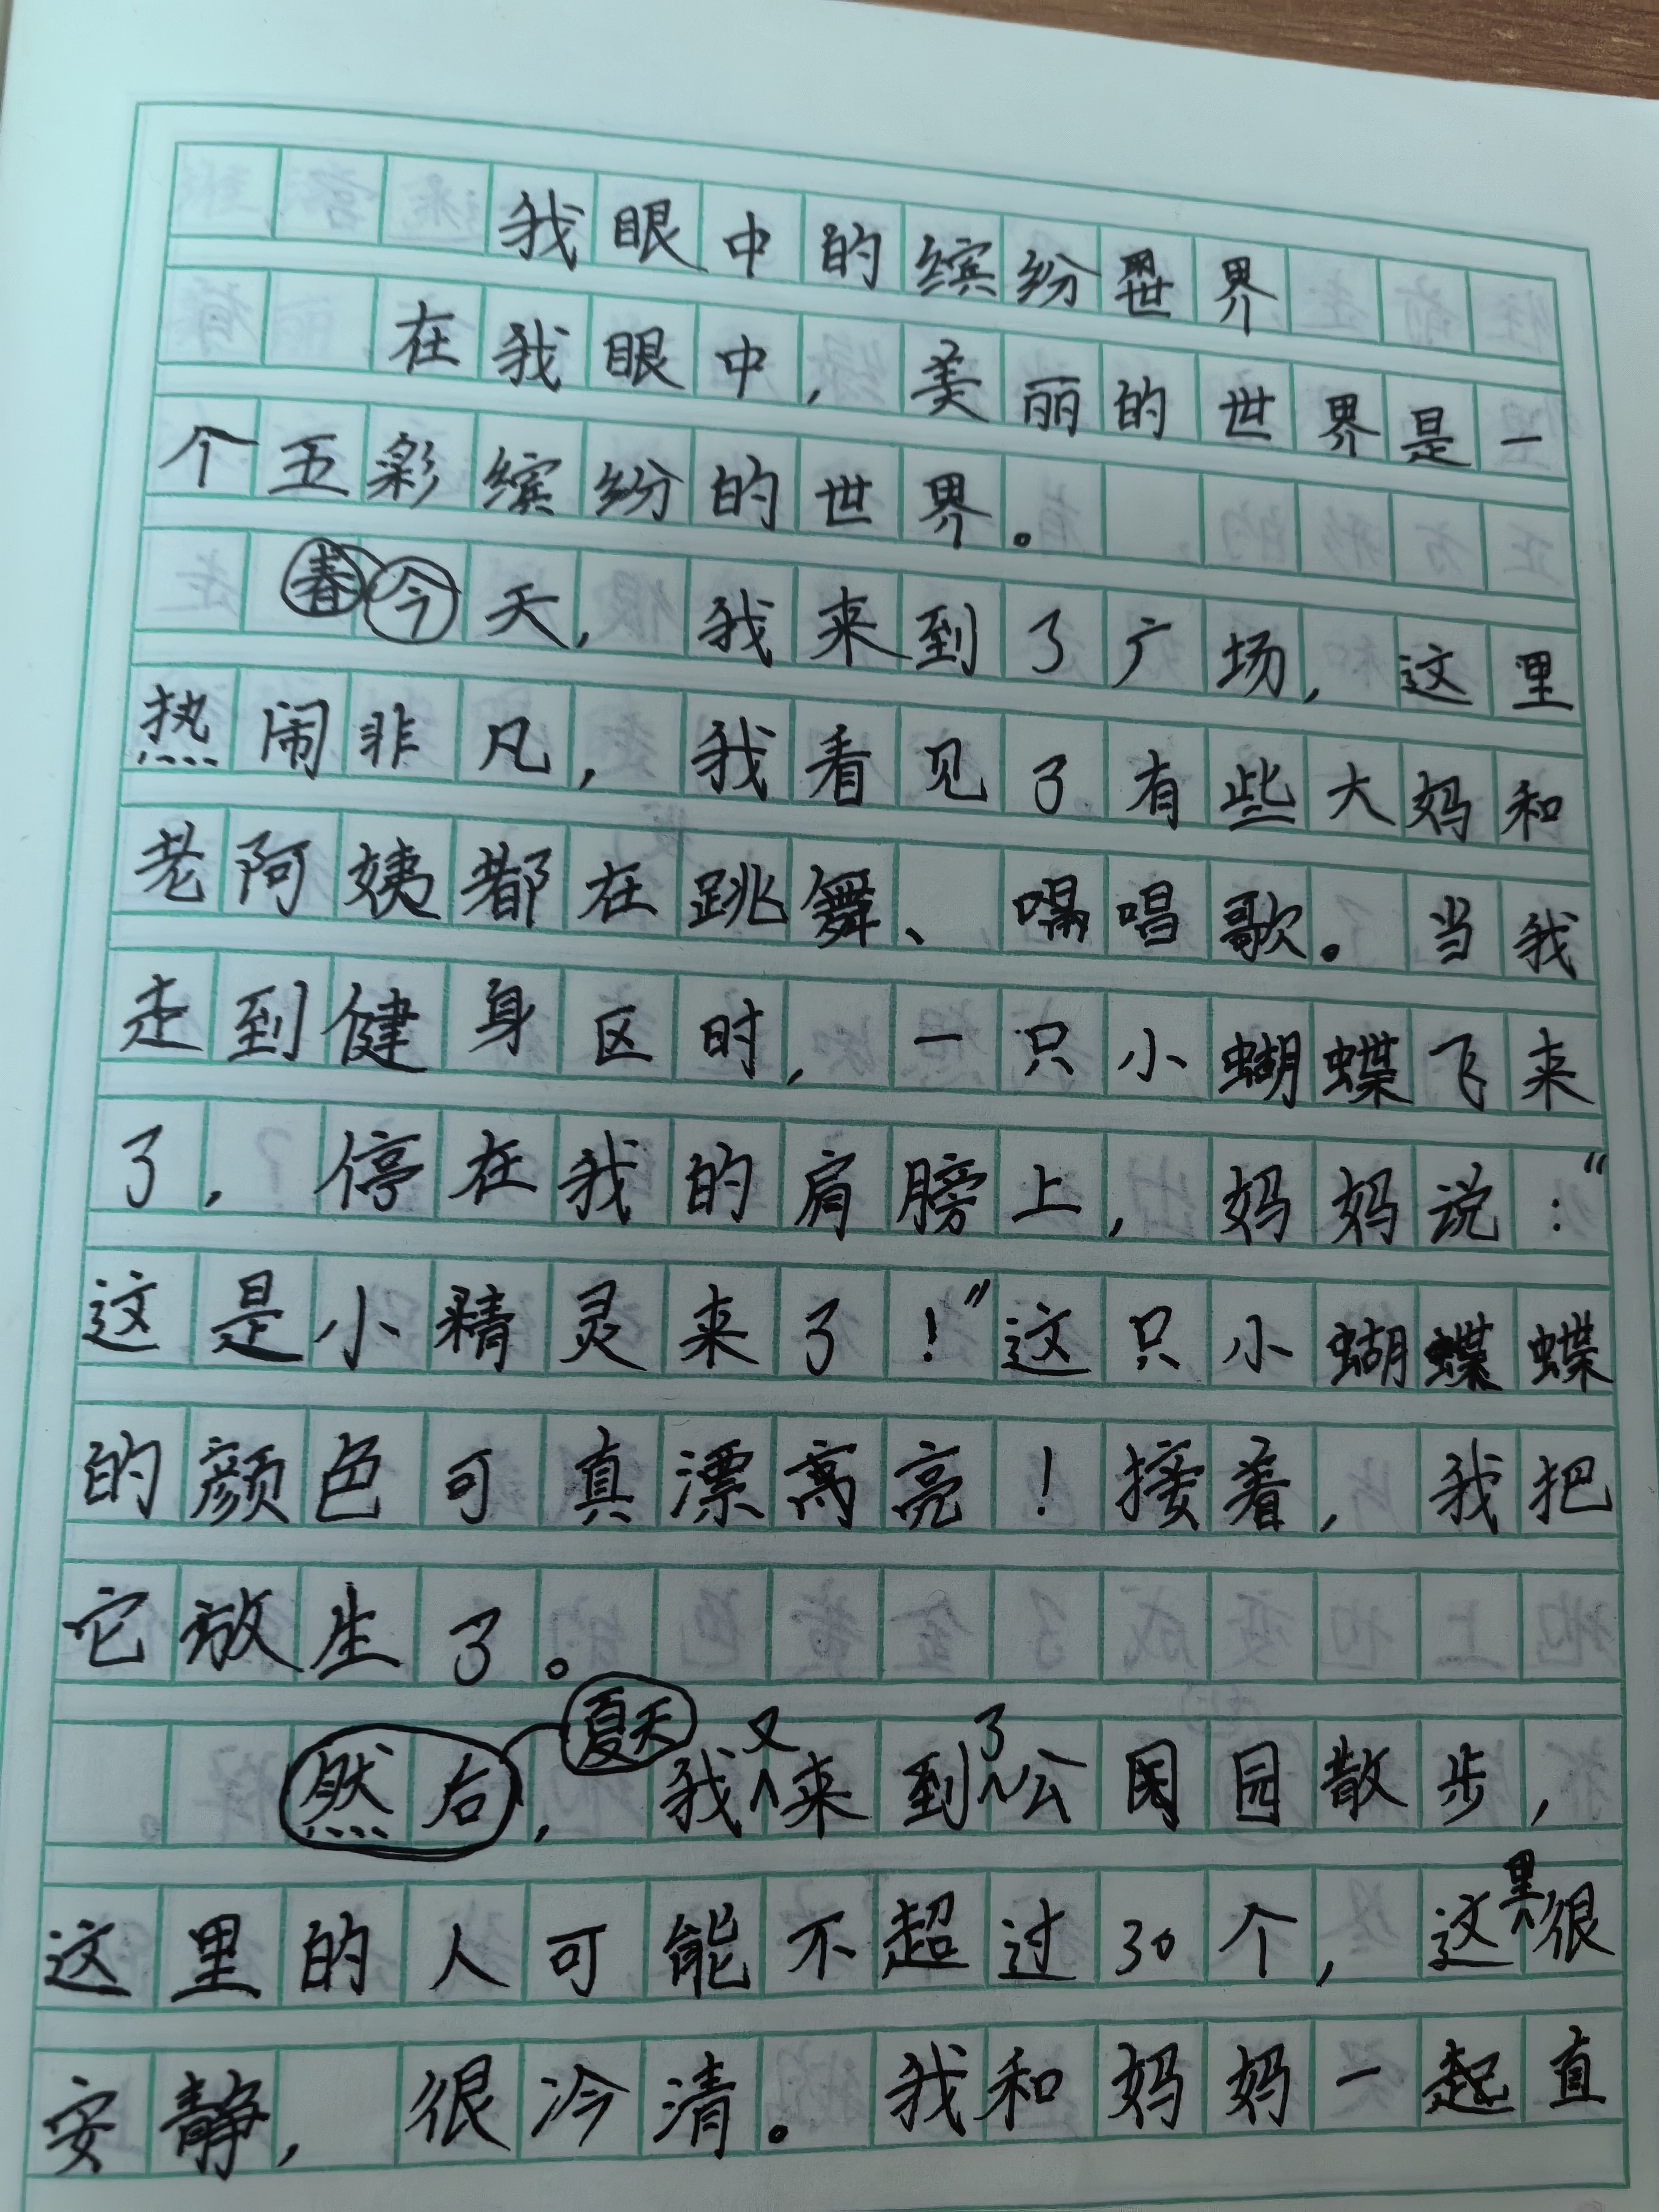 我眼中的缤纷世界
在我眼中,美丽的世界是一
个五彩缤纷的世界。
春今天,我来到了广场,这里
热闹非凡,我看见了有些大妈和
老阿姨都在跳舞、唱歌。当我
走到健身区时,一只小蝴蝶飞来
了,停在我的肩膀上,妈妈说:“
这是小精灵来了!”这只小蝴蝶
的颜色可真漂亮!接着,我把
它放生了。
夏天 又 了
然后,我来到公园散步,
里
这里的人可能不超过30个,这很
安静,很冷清。我和妈妈一起直